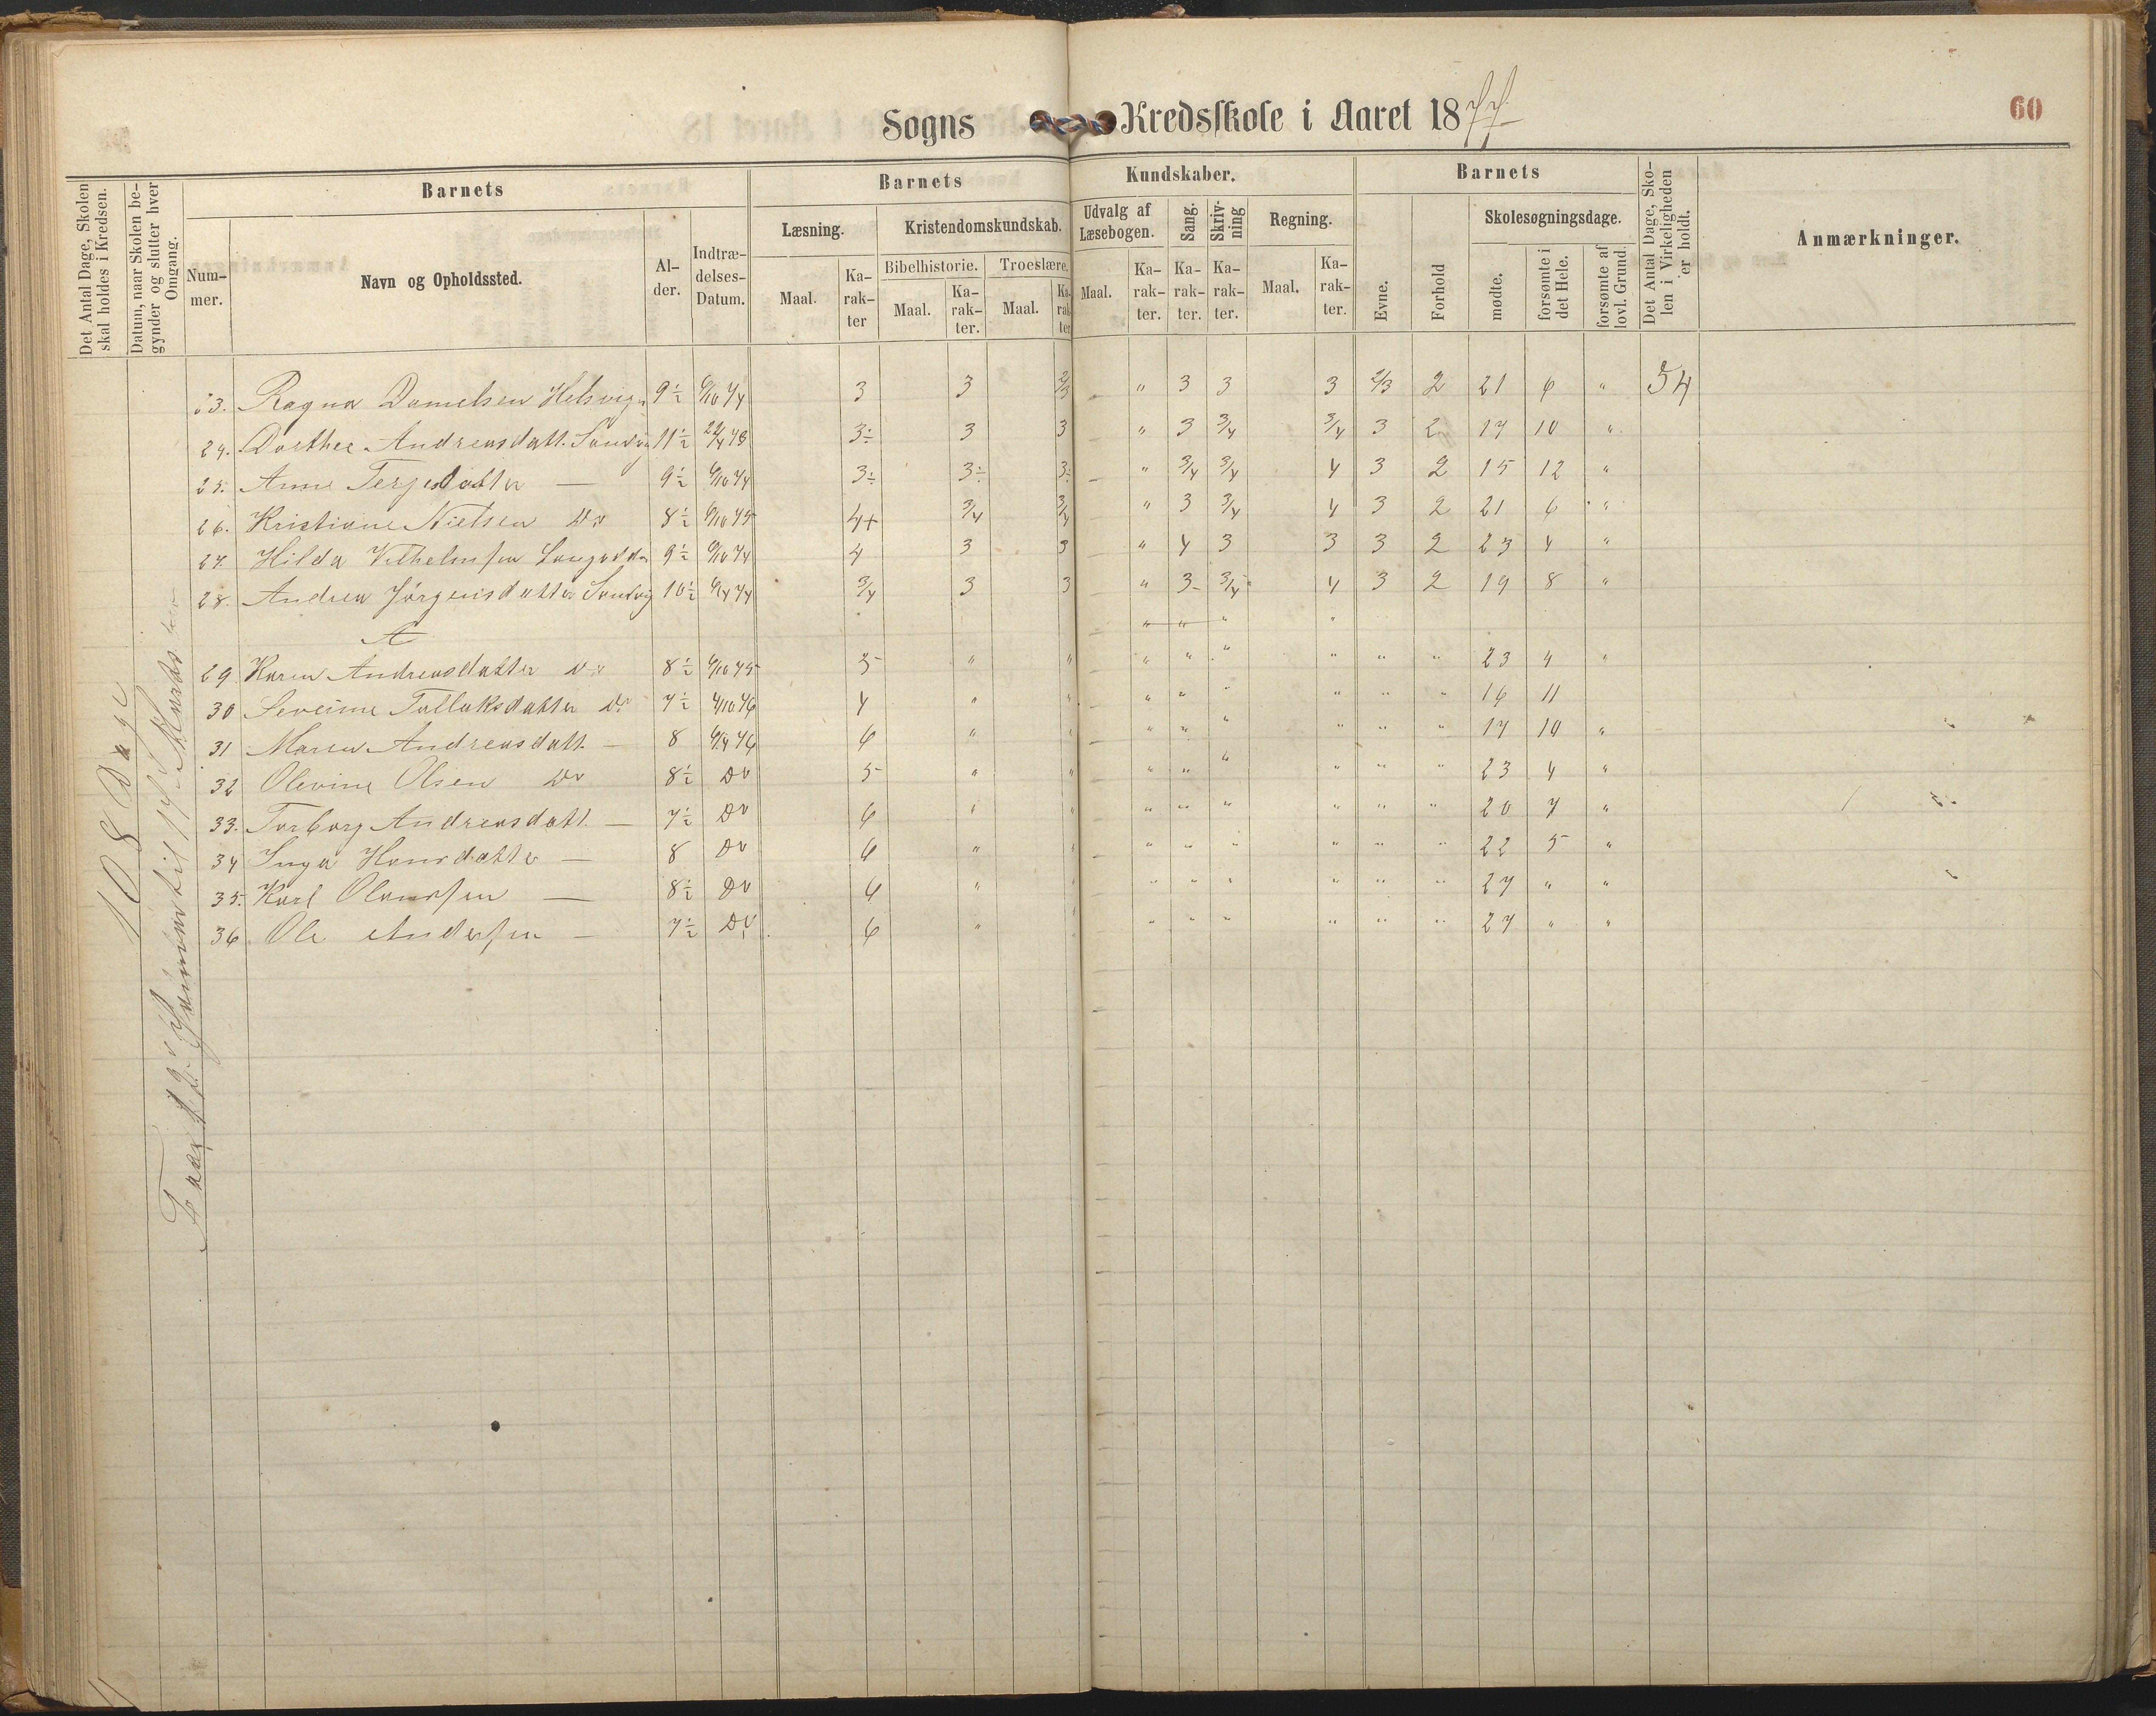 Sogns Kredsskole i Aaret 1877
60
Det Antal Dage, Skolen skal holdes i Kredsen.
Datum, naar Skolen begynder og slutter hver Omgang.
Barnets
Nummer.
Navn og Opholdssted.
Alder.
Indtrædelses-Datum.
Barnets Kundskaber.
Læsning.
Maal.
Karakter
Kristendomskundskab.
Bibelhistorie.
Maal.
Karakter.
Troeslære.
Maal.
Karakter
Udvalg af Læsebogen.
Maal.
Karakter.
Sang.
Karakter.
Skrivning
Karakter.
Regning.
Maal.
Karakter.
Barnets
Evne.
Forhold
Skolesøgningsdage.
mødte.
forsømte i det Hele.
forsømte af lovl. Grund.
Det Antal Dage, Skolen i Virkeligheden er holdt.
Anmærkninger.
108 Dage
23. Ragna Danielsen 9½ 6/10 74 3 3 2/3 " 3 3 3 2/3 2 21 6 " 54
24. Dorthee Andreasdatt. Sandvig 11½ 3÷ 3 3 " 3 3/4 3/4 3 2 17 10 "
25. Anne Terjesdatter — 9½ 6/10 74 3÷ 3÷ 3÷ " 3/4 3/4 4 3 2 15 12 "
26. Kristiane Nielsen Do 8½ 6/10 75 4+ 3/4 3/4 " 3 3/4 4 3 2 21 6 "
27. Hilda Vilhelmsen 9½ 6/10 74 4 3 3 " 4 3 3 3 2 23 4 "
28. Andrea Jørgensdatter Sandvig 10½ 3/4 3 3 " 3 3/4 4 3 2 19 8 "
A " " " "
29 Karen Andreasdatter Do 8½ 6/10 75 5 " " " " " " " " 23 4 "
30 Severine Tallaksdatter Do 7½ 4/10 76 4 " " " " " " " " 16 11
31 Maren Andreasdatt. — 8 6/4 76 6 " " " " " " " " 17 10 "
32 Olevine Olsen Do 8½ Do 5 " " " " " " " " 23 4 "
33. Torborg Andreasdatt. — 7½ Do 6 " " " " " " " " 20 7 "
34 Inga Hansdatter — 8 Do 6 " " " " " " " " 22 5 "
35. Karl Olaussen — 8½ Do 6 " " " " " " " " 27 " "
36 Ole Andersen — 7½ Do 6 " " " " " " " " 27 " "